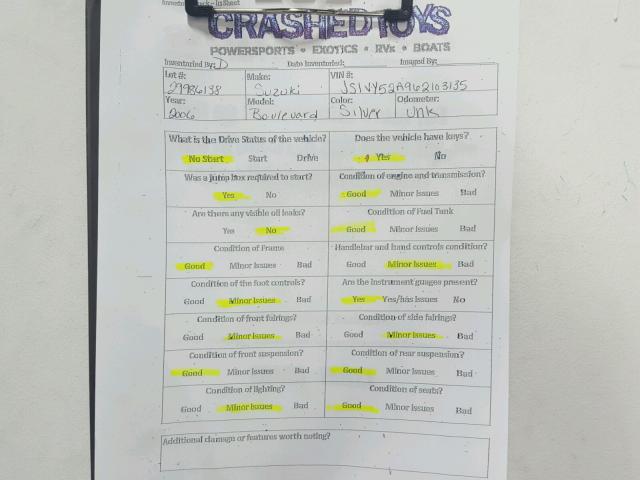 CRASHEDTOYS
POWERSPORTS • EXOTICS • RVs • BOATS
Inventoried By: D Date Inventoried: Imaged By:
Lot #: Make: VIN #:
29986138 Suzuki JS1VY52A962103135
Year: Model: Color: Odometer:
2006 Boulevard Silver Unk
What is the Drive Status of the vehicle? Does the vehicle have keys?
No Start Start Drive Yes No
Was a jump box required to start? Condition of engine and transmission?
Yes No Good Minor Issues Bad
Are there any visible oil leaks? Condition of Fuel Tank
Yes No Good Minor Issues Bad
Condition of Frame Handlebar and hand controls condition?
Good Minor Issues Bad Good Minor Issues Bad
Condition of the foot controls? Are the instrument guages present?
Good Minor Issues Bad Yes Yes/has Issues No
Condition of front fairings? Condition of side fairings?
Good Minor Issues Bad Good Minor Issues Bad
Condition of front suspension? Condition of rear suspension?
Good Minor Issues Bad Good Minor Issues Bad
Condition of lighting? Condition of seats?
Good Minor Issues Bad Good Minor Issues Bad
Additional damage or features worth noting?